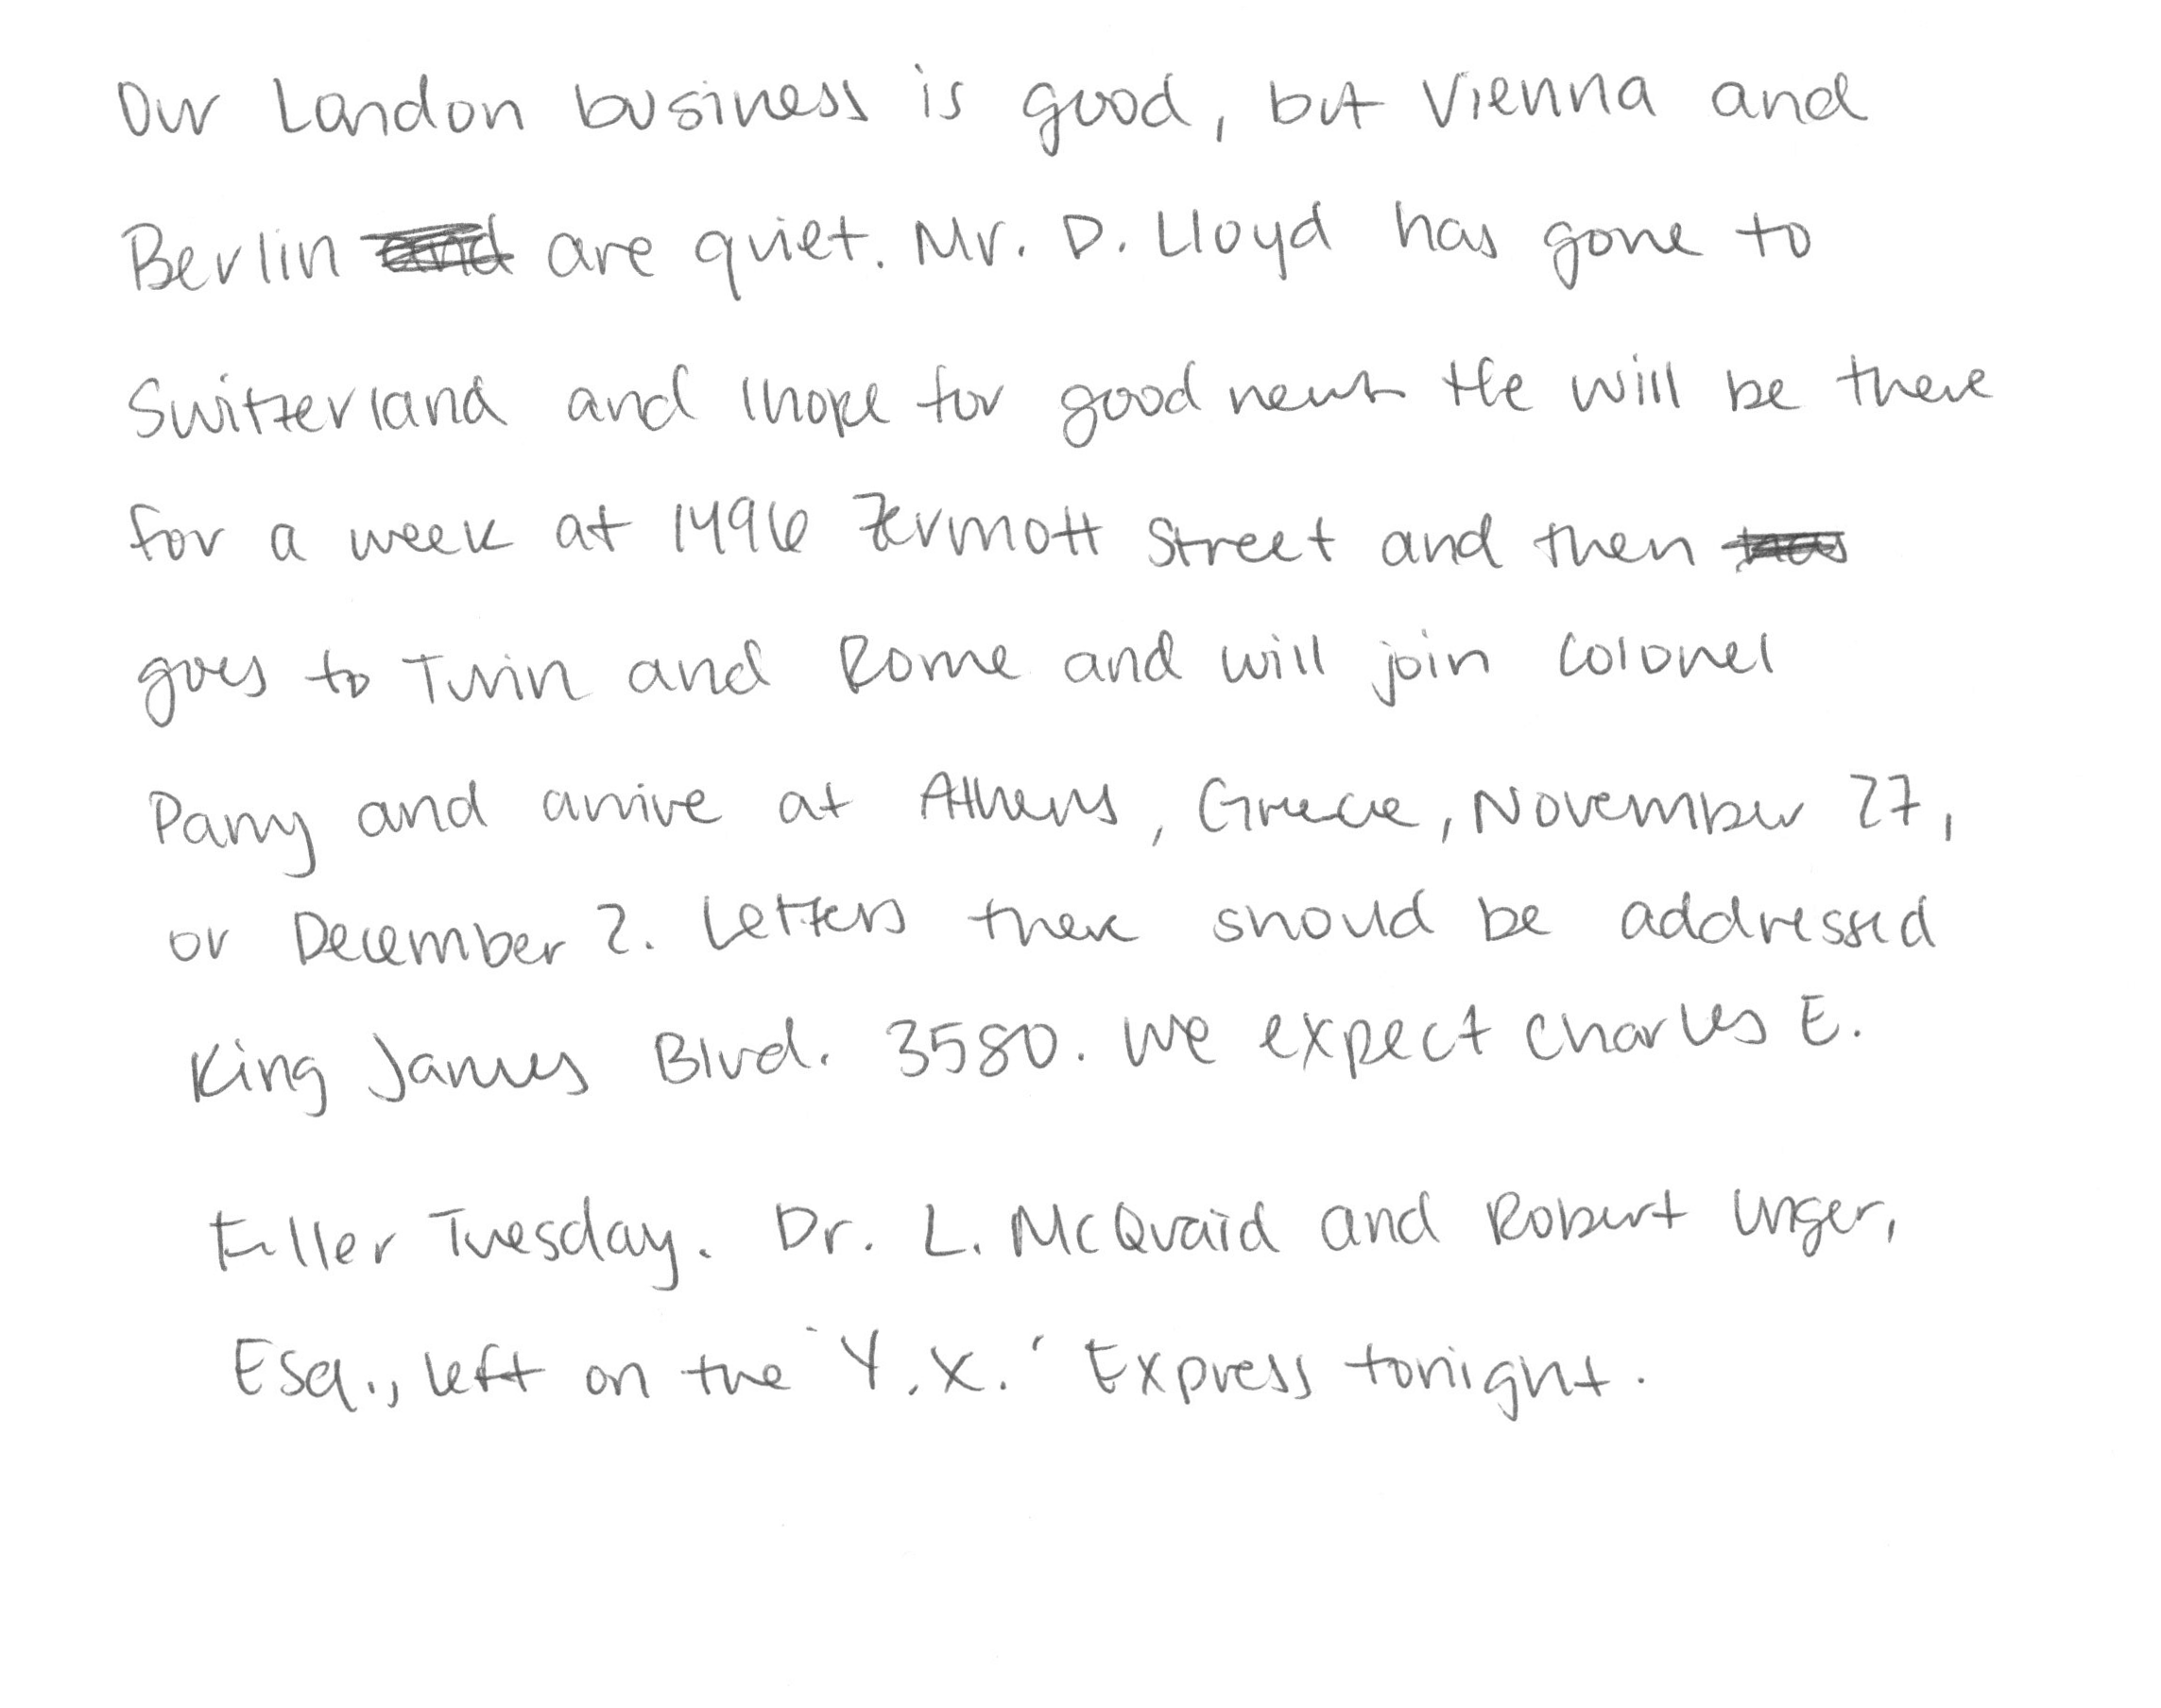 Our London business is good, but Vienna and
Berlin are quiet. Mr. D. Lloyd has gone to
Switzerland and I hope for good news He will be there
for a week at 1496 Zermott Street and then
goes to Turin and Rome and will join Colonel
Parry and arrive at Athens, Greece, November 27,
or December 2. Letters there should be addressed
King James Blvd. 3580. We expect Charles E.
Fuller Tuesday. Dr. L. McQuaid and Robert Unger,
Esq., left on the "Y.X." Express tonight.